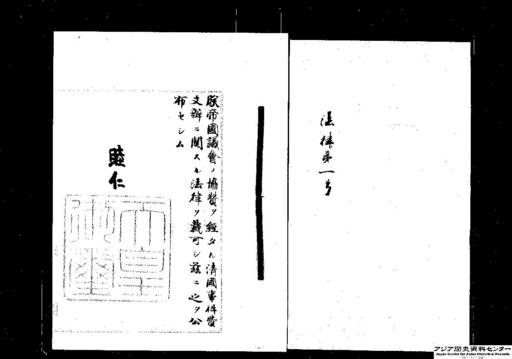 法律第一号
朕帝國議會ノ協賛ヲ經タル清國事件費
支辨ニ關スル法律ヲ裁可シ玆ニ之ヲ公
布セシム
睦仁
天皇
御璽
アジア歴史資料センター
Japan Center for Asian Historical Records